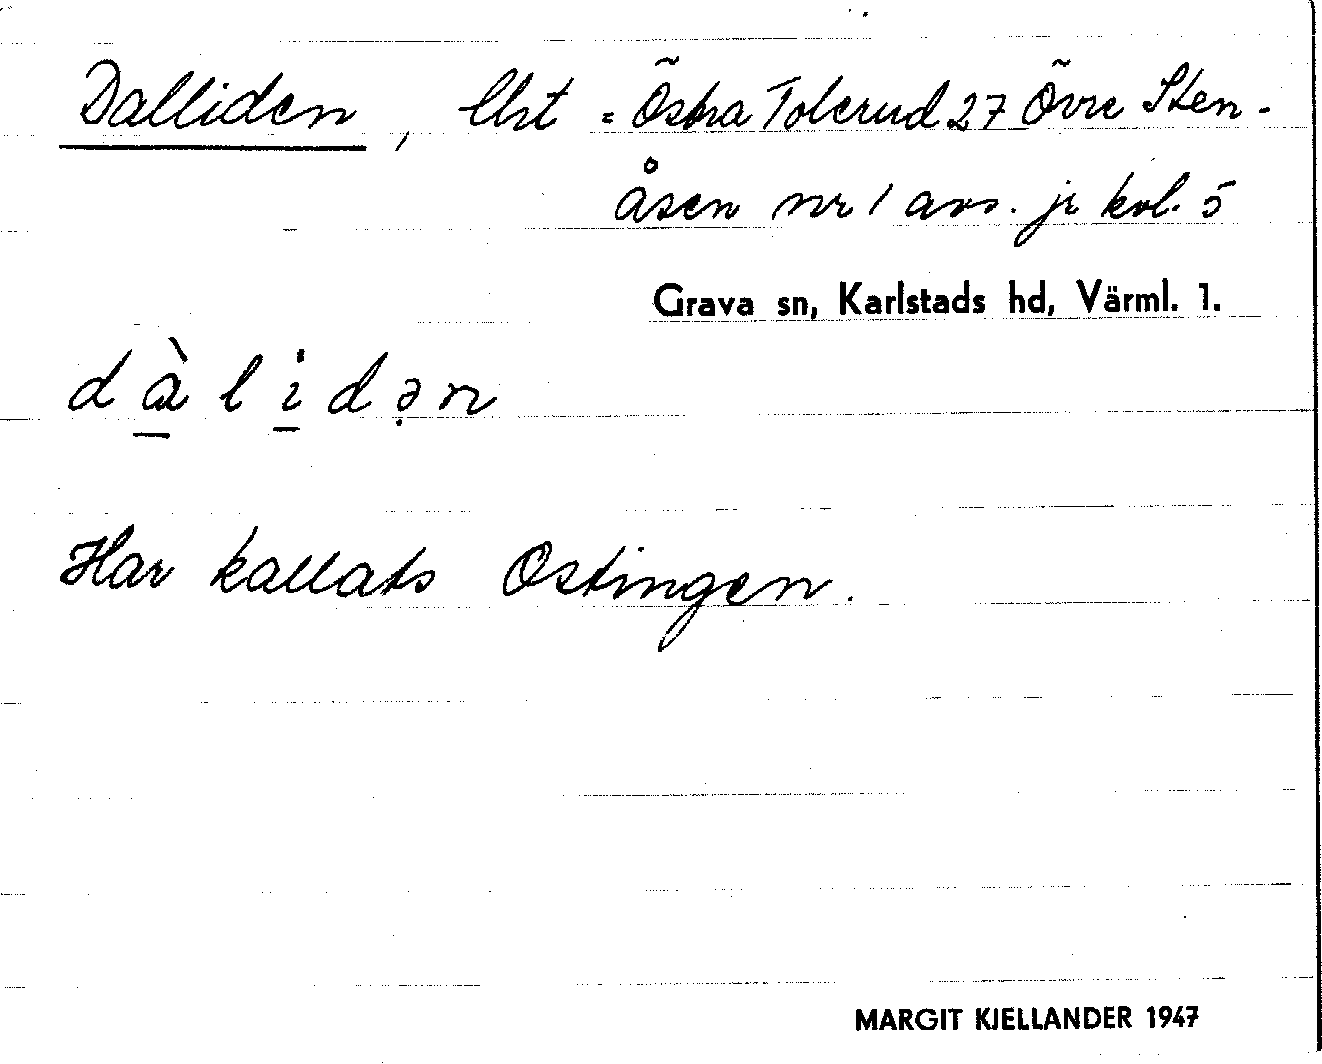 Dalliden, lht = Östra Tolerud 27 Övre Sten-
åsen nr 1 avs. jr kol. 5
Grava sn, Karlstads hd, Värml. 1.
dàlidən
Har kallats Ostingen.
MARGIT KJELLANDER 1947